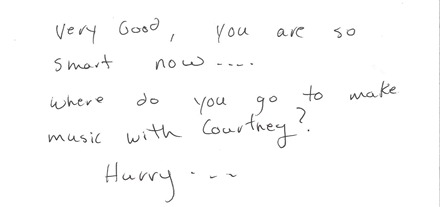 Very Good, you are so
smart now ----
where do you go to make
music with Courtney?
Hurry ---